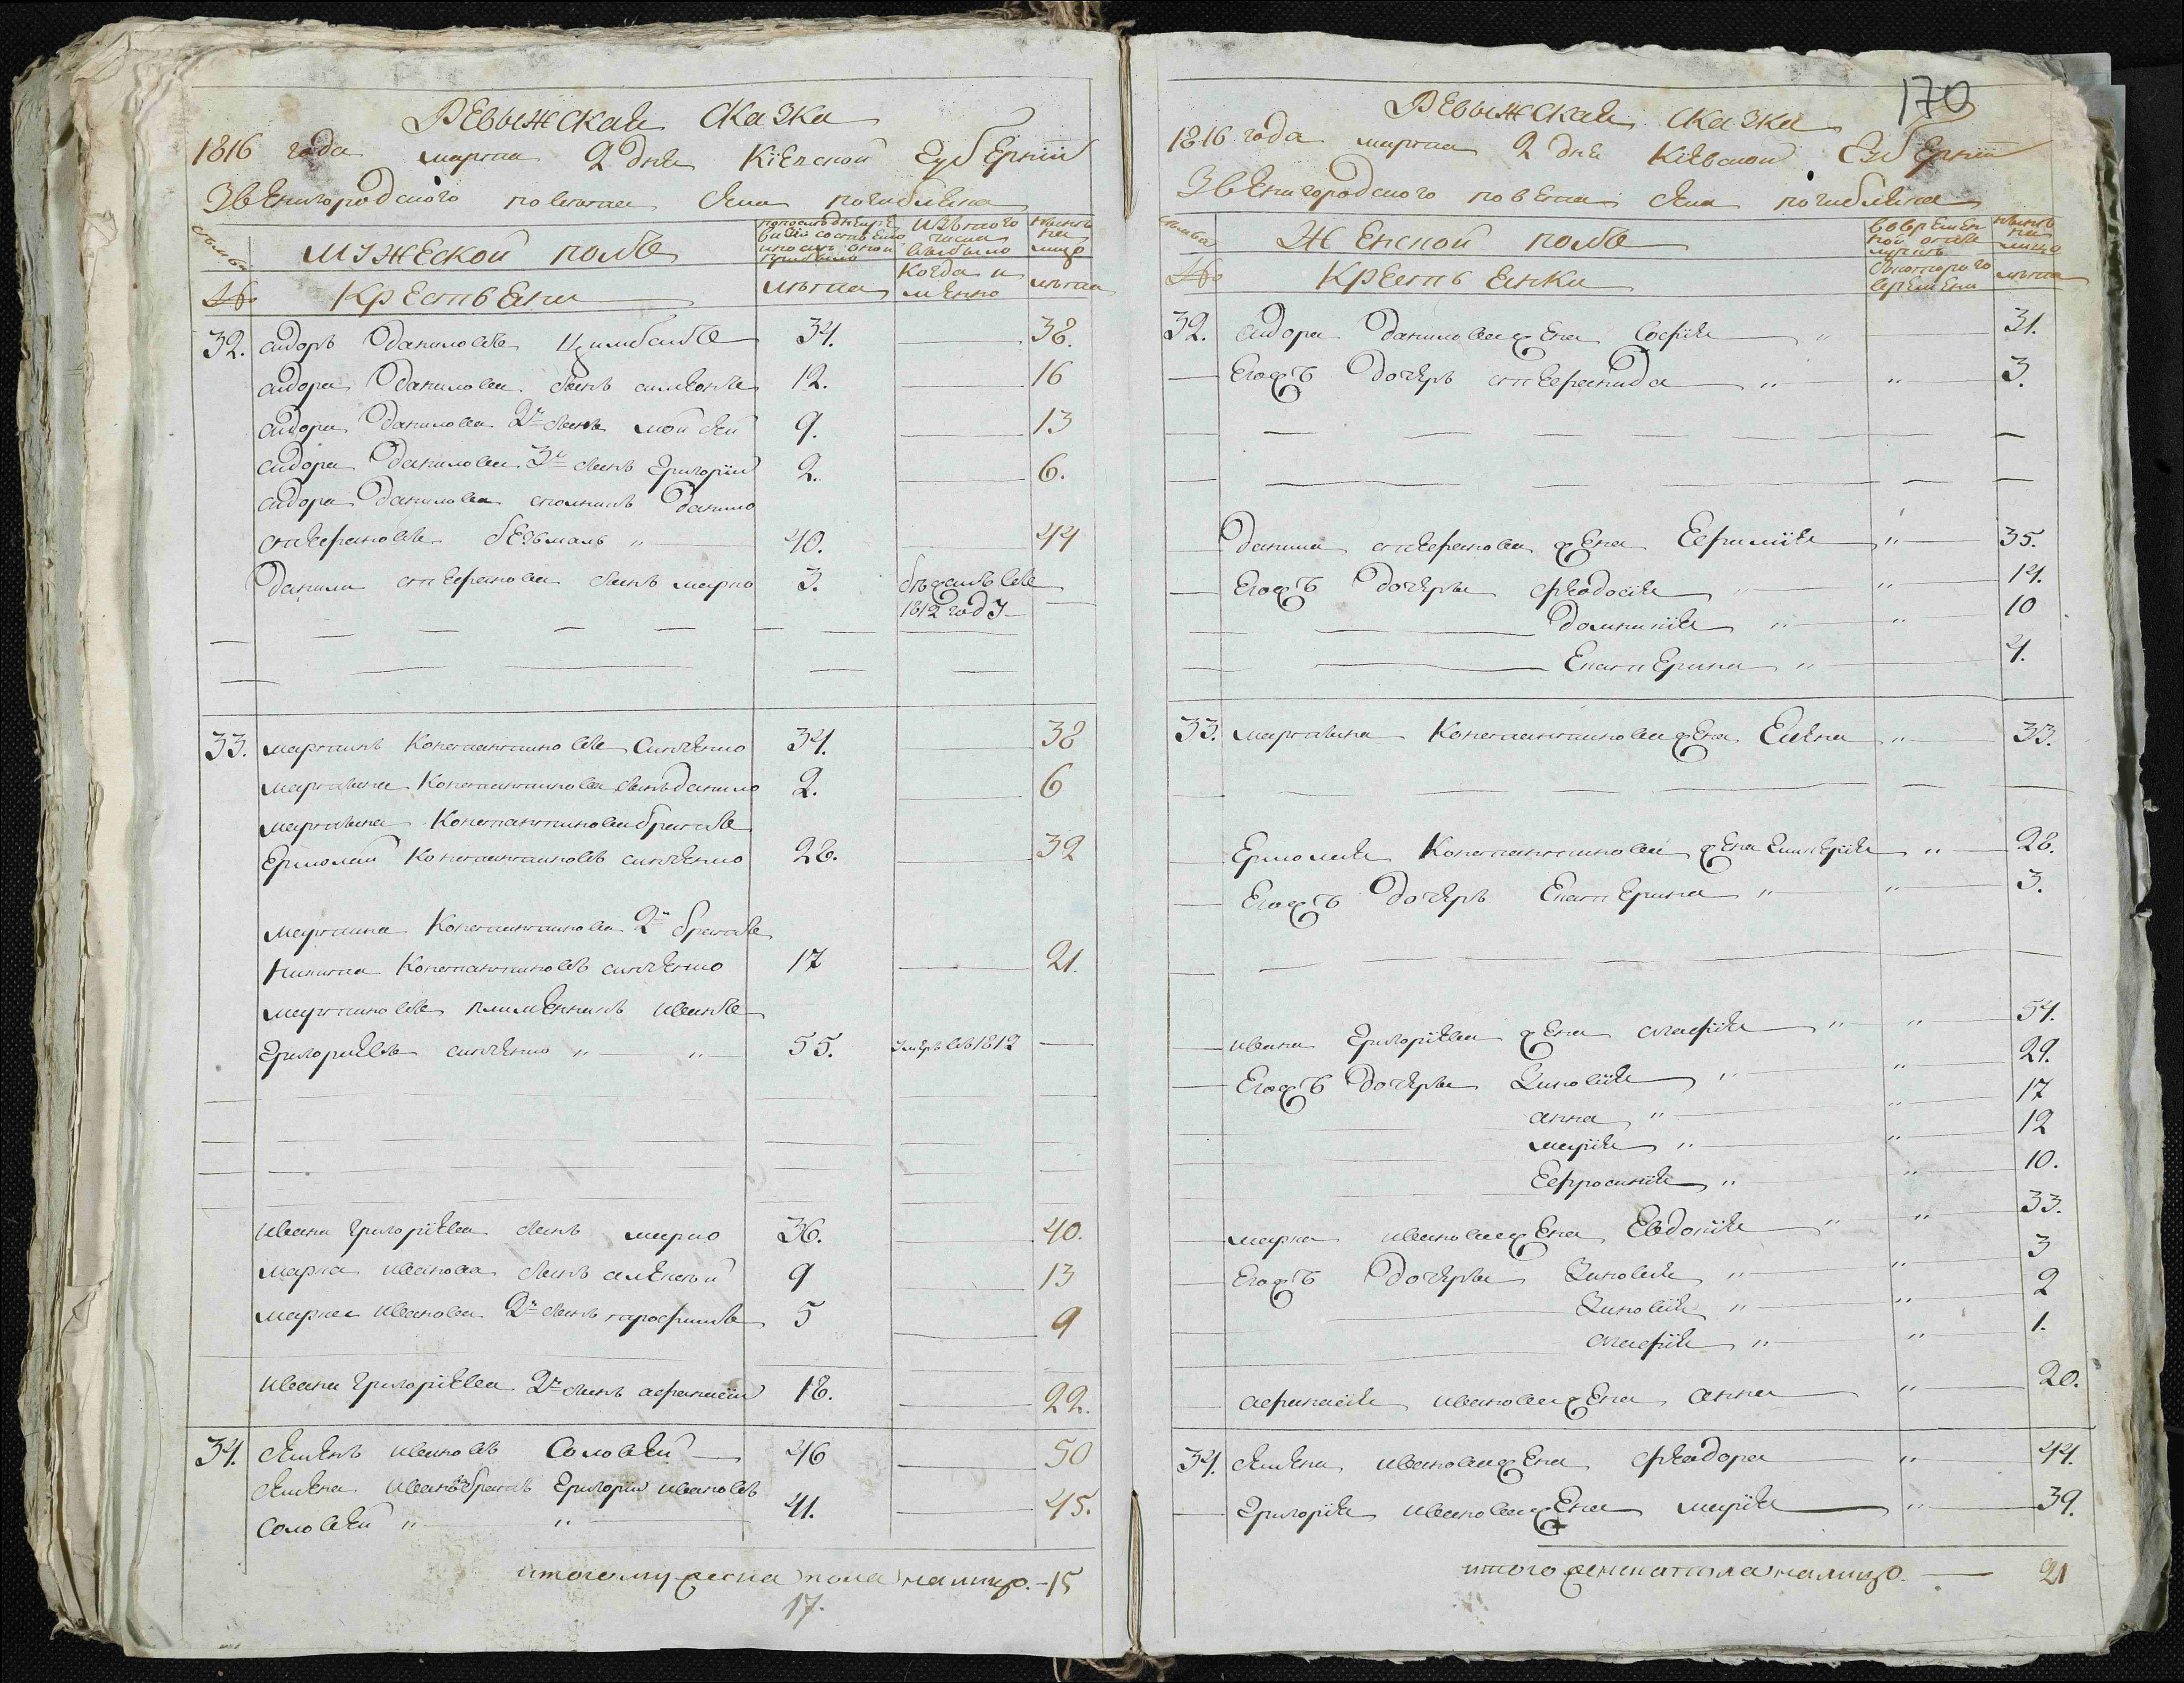 Ревыжская сказка
1816 года марта 2 дня Кіевской Губерніи
Звенигородского повета села погибляка
семьи
мужеской полъ
по последней ревизіи состояло и после оной прибыло
изътого числа выбыло
нынѣ на лицо
№
Крестьяни
лѣта
когда имянно
лѣта
32. сидоръ даниловъ Цимбалъ 34. 38.
сидора данилова сынъ симеонъ 12. 16
сидора данилова 2й сынъ мойсей 9. 13
сидора данилова 3й сынъ григорій 2. 6.
сидора данилова данило
стеѳановъ безмалъ „ 40. 44
данила стеѳанова сынъ марко 3. бѣжалъ въ
1812 году
33. мартинъ Константиновъ Синченко 34. 38
мартына Константинова сынъ данило 2. 6
мартына Константинова братъ
Ермолай Константиновъ синченко 28. 32
мартина Константинова 2й братъ
Никита Константиновъ синченко 17 21.
мартиновъ плименникъ иванъ
григоріевъ синченко „ „ 55. умеръ въ 1812
ивана григоріева сынъ марко 36. 40.
марка иванова сынъ алексѣй 9 13
марка иванова 2й сынъ трофимъ 5 9
ивана григоріева 2й сынъ афанасій 18. 22.
34. семенъ ивановъ Соловей 46 50
семена иванова братъ григорій ивановъ
Соловей „ „ 41. 45.
итого мужеска пола налицо. - 15
17.
170
Ревыжская сказка
1816 года марта 2 дня Кіевской Губерніи
Звенигородского повета села погибляка
семьи
Женской полъ
во временной отлучкѣ
нынѣ на лицо
№
Крестьенки
съкоторого времени
лѣта
32. сидора данилова жена Софія „ 31.
Егожъ дочерь стеѳанида „ „ 3.
данила стеѳанова жена Евѳимія „ 35.
Егожъ дочеры ѳеодосія „ „ 14.
домникія „ „ 10
Екатерина „ 4.
33. мартына Константинова жена Елена „ 33.
Ермолая Константинова жена „ 28.
Егожъ дочерь Екатерина „ „ 3.
ивана григоріева жена агафія „ „ 54.
Егожъ дочеры Зиновія „ „ 29.
анна „ „ 17
марія „ „ 12
Евфросинія „ „ 10.
марка иванова жена Евдокія „ „ 33.
Егожъ дочеры Зиновія „ „ 3
Зиновія „ „ 2
агафія „ „ 1.
афанасія иванова жена анна „ 20.
34. семена иванова жена ѳеодора „ 44.
григорія иванова жена марія „ 39.
итого женска пола налицо. 21